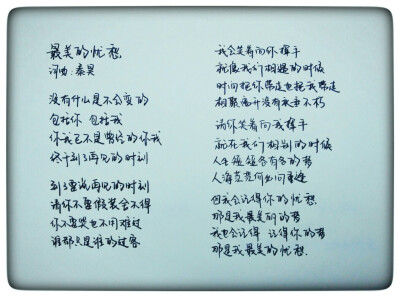 最美的忧愁
词曲：秦昊
没有什么是不会变的
包括你 包括我
你我已不是曾经的你我
终于到了再见的时刻
到了要说再见的时刻
请你不要假装舍不得
你不要哭也不用难过
谁都只是谁的过客
我会笑着向你挥手
就像我们相遇的时候
时间把你带走也把我带走
相聚离开没有永垂不朽
请你笑着向我挥手
就在我们相别的时候
人生短短各有各的梦
人海茫茫何必问重逢
但我会记得你的忧愁
那是我最美丽的梦
我也会记得 记得你的梦
那是我最美的忧愁